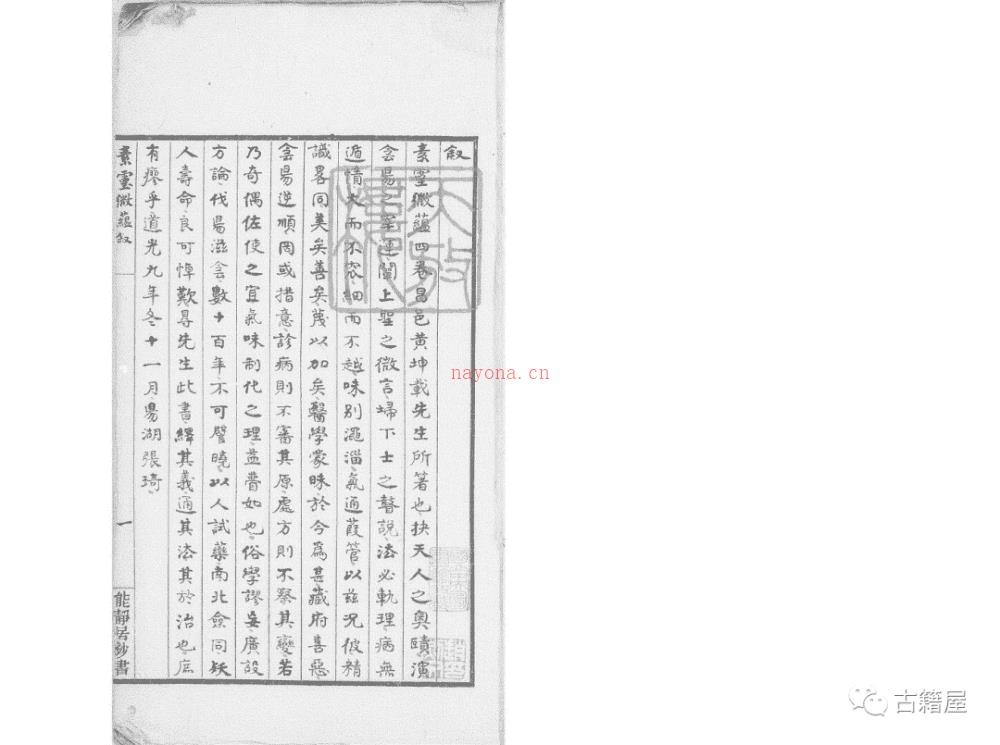 叙
素靈微蘊四卷昌邑黃坤載先生所著也抉天人之奧賾演
侌昜之宰運闡上聖之微言埽下士之瞽説法必軌理病無
遁情大而不窕細而不越味別澠淄氣通葭管以兹況彼精
識畧同美矣善矣蔑以加矣醫學蒙昧於今爲甚藏府善惡
侌昜逆順罔或措意診病則不審其原處方則不察其變若
乃奇偶佐使之宜氣味制化之理益瞢如也俗學謬妄廣設
方論伐昜滋侌數十百年不可譬曉以人試藥南北僉同殀
人壽命良可悼歎尋先生此書繹其義通其法其於治也庶
有瘳乎道光九年冬十一月昜湖張琦
素靈微蘊叙
一
能靜居鈔書
天放
nayona.cn
古籍屋